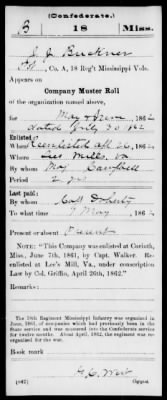 (Confederate.)
B 18 Miss.
J. J. Buckner
, Co. A, 18 Reg't Mississippi Vols.
Appears on
Company Muster Roll
of the organization named above,
for May & June, 1862
dated July 30, 186
Enlisted:
When Reenlisted Apl 26, 1862
Where Lees Mills, Va
By whom Maj Campbell
Period 2 yrs
Last paid:
By whom Capt
To what time 1 May, 186
Present or absent Present
NOTE: "This Company was enlisted at Corinth,
Miss, June 7th, 1861, by Capt. Walker. Re-
enlisted at Lee's Mill, Va., under conscription
Law by Col. Griffin, April 26th, 1862."
Remarks:
The 18th Regiment Mississippi Infantry was organized in
June, 1861, of companies which had previously been in the
State service and was mustered into the Confederate service
for twelve months. About April, 1862, the regiment was re-
organized for the war.
Book mark:
(647) Copyist.